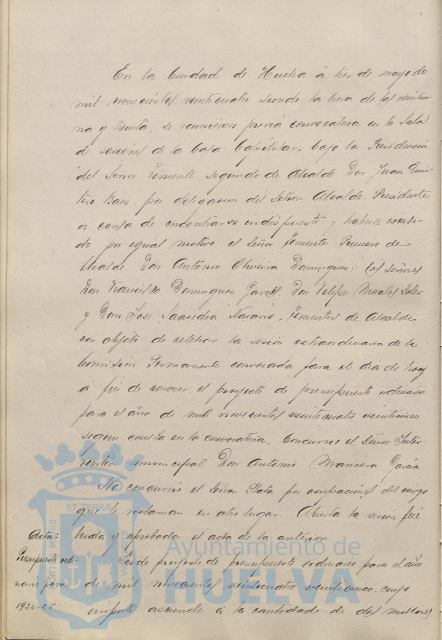 En la Ciudad de Huelva á tres de mayo de
mil novecientos veinticuatro siendo la hora de las veintiu-
na y treinta, se reunieron previa convocatoria en la Sala
de sesiones de la Casa Capitular, bajo la Presidencia
del Señor Teniente segundo de Alcalde Don Juan Quin-
tero Baez por delegacion del Señor Alcalde Presidente
á causa de encontrarse indispuesto y haberse excusa-
do por igual motivo el Señor Teniente Primero de
Alcalde Don Antonio Oliveira Dominguez: los Señores
Don Francisco Dominguez Garcés Don Felipe Morales
y Don Jose Saavedra Navarro, Tenientes de Alcalde
con objeto de celebrar la sesión extraordinaria de la
Comisión Permanente convocada para el dia de hoy
á fin de conocer el proyecto de presupuesto ordinario
para el año de mil novecientos veinticuatro veinticinco
segun consta en la convocatoria. Concurre el Señor Inter-
ventor municipal Don Antonio Mancera
No concurrió el Señor Mata por ocupaciones del cargo
que le reclaman en otro lugar. Abierta la sesión fué
Acta: leida y aprobada el acta de la anterior.
Presupuesto ordi- Leido proyecto de presupuesto ordinario para el año
nario para de mil novecientos veinticuatro veinticinco cuyo
1924-25 importe asciende á la cantidad de dos millones
Ayuntamiento de
HUELVA